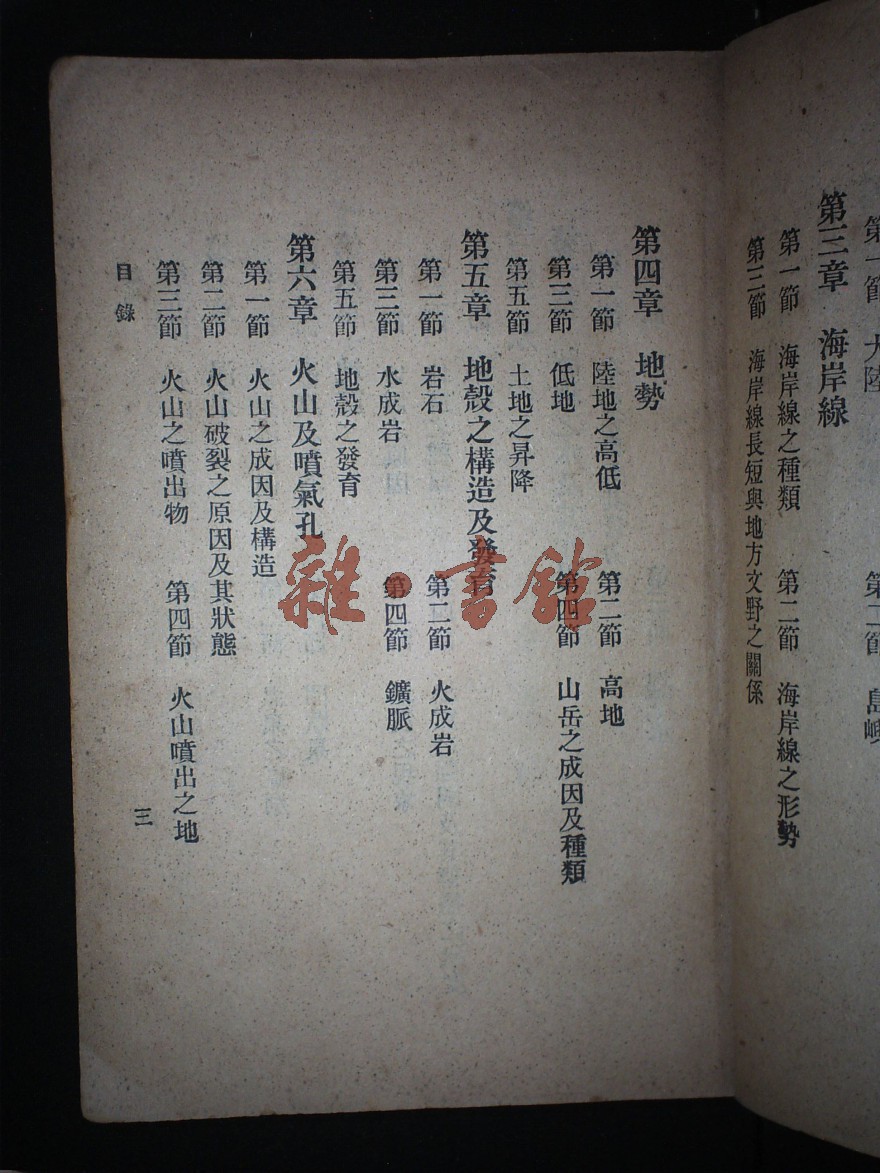 第一節　大陸　第二節　島嶼
第三章　海岸線
第一節　海岸線之種類　第二節　海岸線之形勢
第三節　海岸線長短與地方文野之關係
第四章　地勢
第一節　陸地之高低　第二節　高地
第三節　低地　第四節　山岳之成因及種類
第五節　土地之昇降
第五章　地殼之構造及發育
第一節　岩石　第二節　火成岩
第三節　水成岩　第四節　鑛脈
第五節　地殼之發育
第六章　火山及噴氣孔
第一節　火山之成因及構造
第二節　火山破裂之原因及其狀態
第三節　火山之噴出物　第四節　火山噴出之地
目錄　三
雜·書館